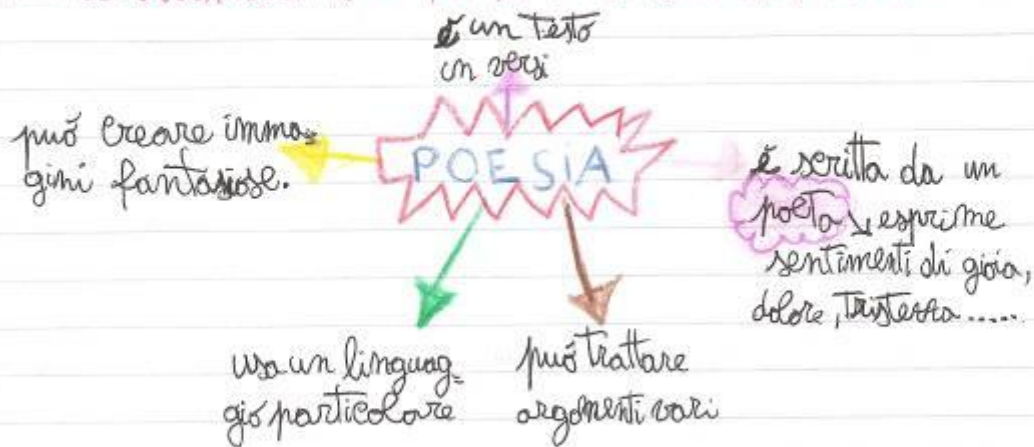 è un testo
in versi
può creare imma=
gini fantasiose.
POESIA
è scritta da un
poeta ↘ esprime
sentimenti di gioia,
dolore, tristezza.....
usa un linguag=
gio particolare
può trattare
argomenti vari